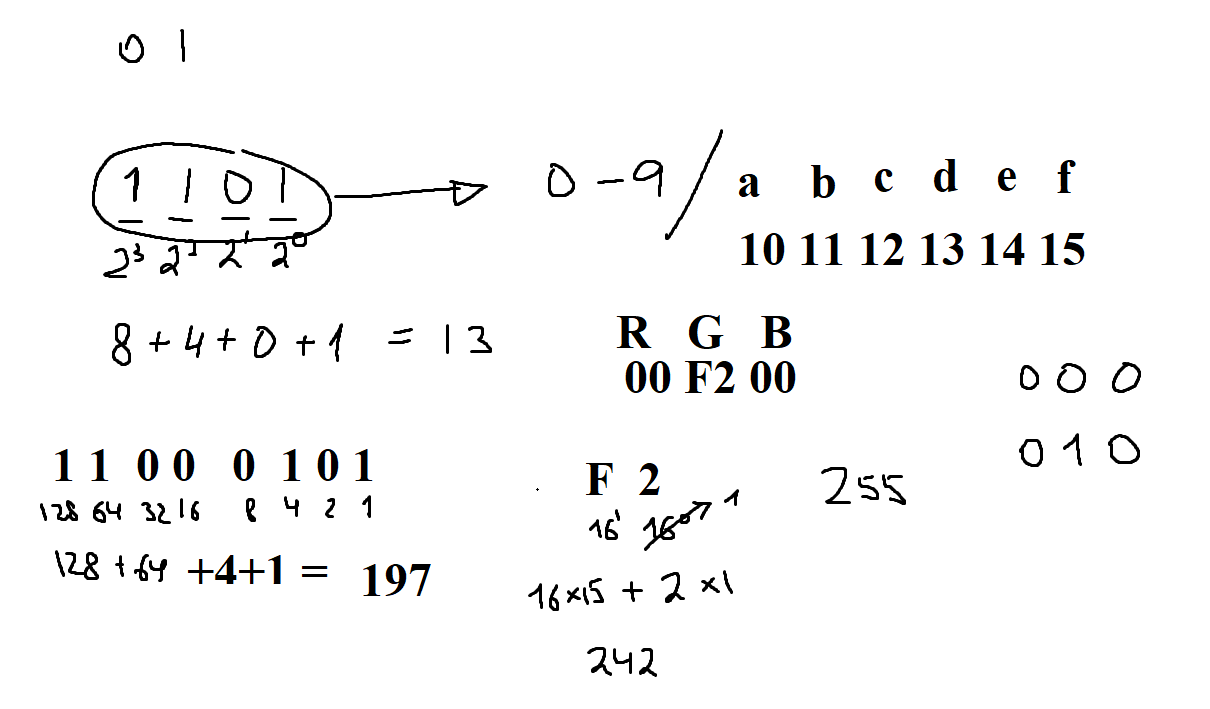 0 1
1 1 0 1
2³ 2² 2¹ 2⁰
8 + 4 + 0 + 1 = 13
0 - 9 / a b c d e f
10 11 12 13 14 15
R G B
00 F2 00
0 0 0
0 1 0
1 1 0 0 0 1 0 1
128 64 32 16 8 4 2 1
128 + 64 +4+1 = 197
F 2
16¹ 16⁰ 1
16×15 + 2 ×1
242
255